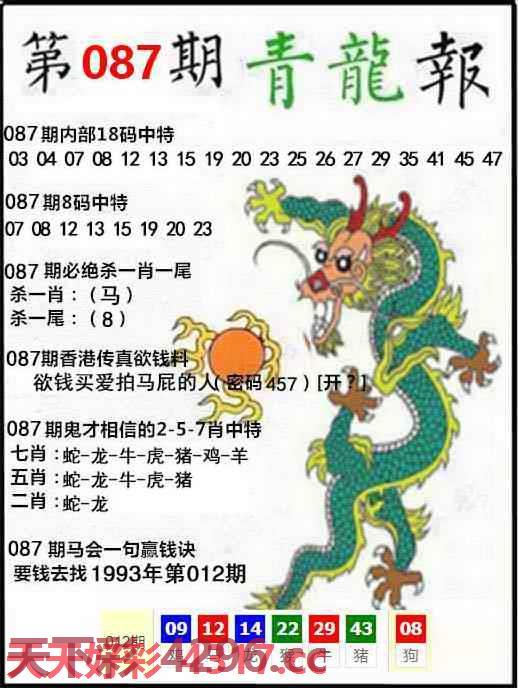 第087期 青龍報
087期内部18码中特
03 04 07 08 12 13 15 19 20 23 25 26 27 29 35 41 45 47
087期8码中特
07 08 12 13 15 19 20 23
087期必绝杀一肖一尾
杀一肖：（马）
杀一尾：（8）
087期香港传真欲钱料
欲钱买爱拍马屁的人(密码457)[开？]
087期鬼才相信的2-5-7肖中特
七肖：蛇-龙-牛-虎-猪-鸡-羊
五肖：蛇-龙-牛-虎-猪
二肖：蛇-龙
087期马会一句赢钱诀
要钱去找1993年第012期
012期 09 12 14 22 29 43 08
鸡 龙 猴 牛 猪 狗
天天好彩42967.cc